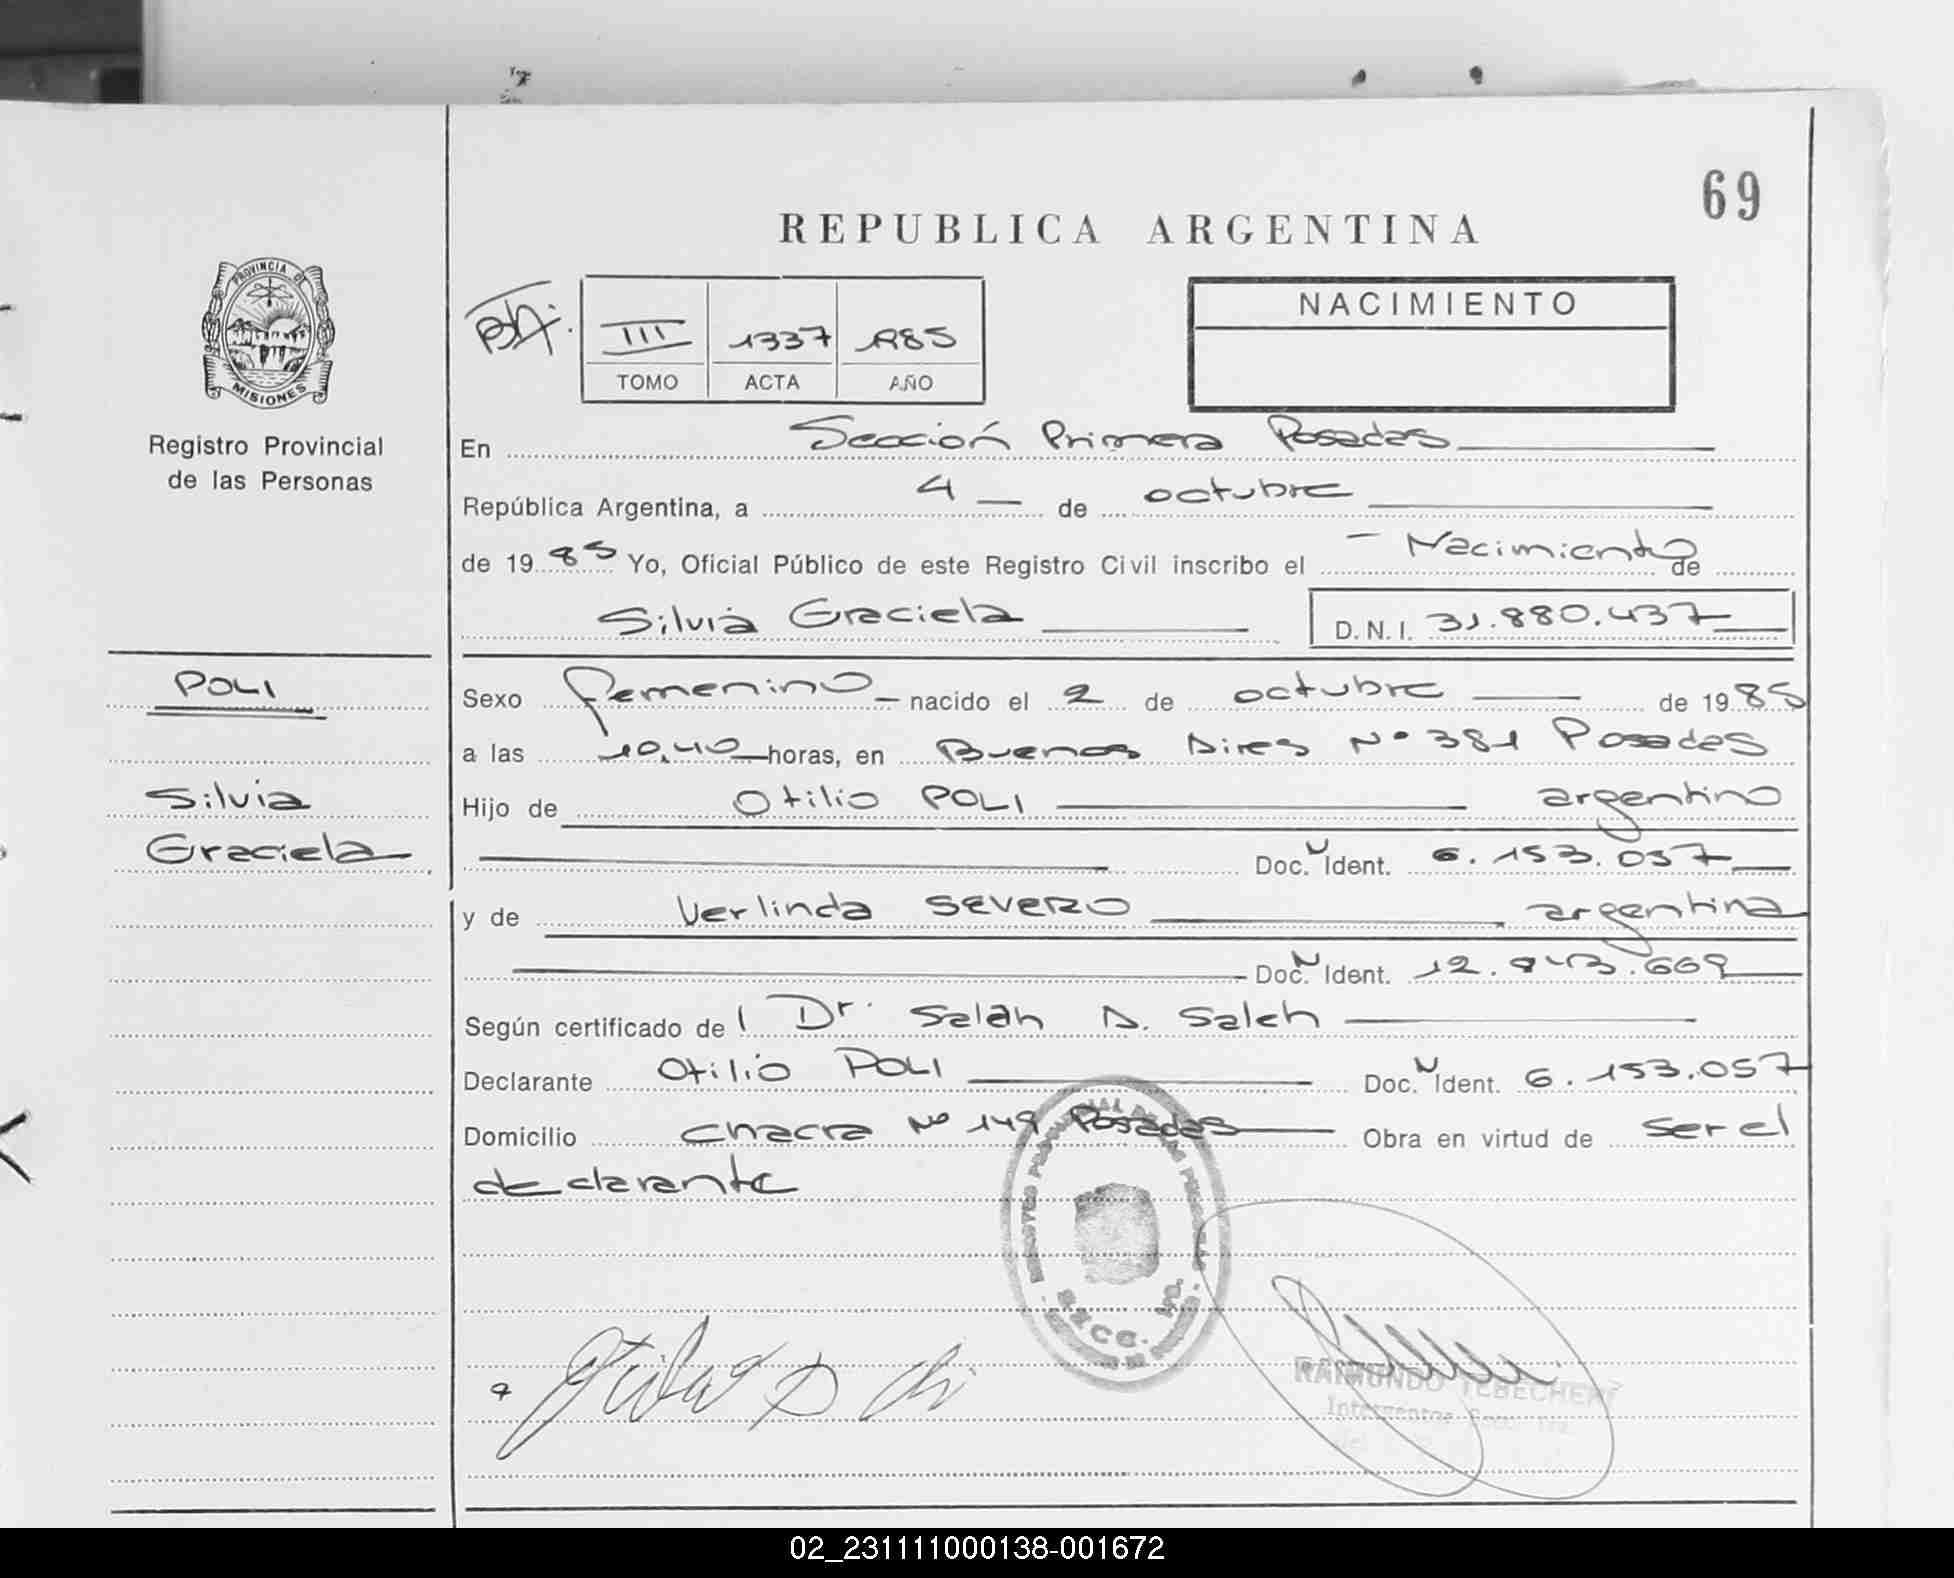 69
REPUBLICA ARGENTINA
PROVINCIA DE
MISIONES
Registro Provincial
de las Personas
III 1337 1985
TOMO ACTA AÑO
NACIMIENTO
En Sección Primera Posadas
República Argentina, a 4 de octubre
de 1985 Yo, Oficial Público de este Registro Civil inscribo el Nacimiento de
Silvia Graciela D.N.I. 31.880.437
POLI
Silvia
Graciela
Sexo femenino nacido el 2 de octubre de 1985
a las 10,40 horas, en Buenos Aires Nº 381 Posadas
Hijo de Otilio POLI argentino
Doc. N Ident. 6.153.057
y de Verlinda SEVERO argentina
Doc. N Ident. 12.843.669
Según certificado de Dr. Salah A. Saleh
Declarante Otilio POLI Doc. N Ident. 6.153.057
Domicilio chacra Nº 149 Posadas Obra en virtud de ser el
declarante
RAIMUNDO TEBECHERI
02_231111000138-001672